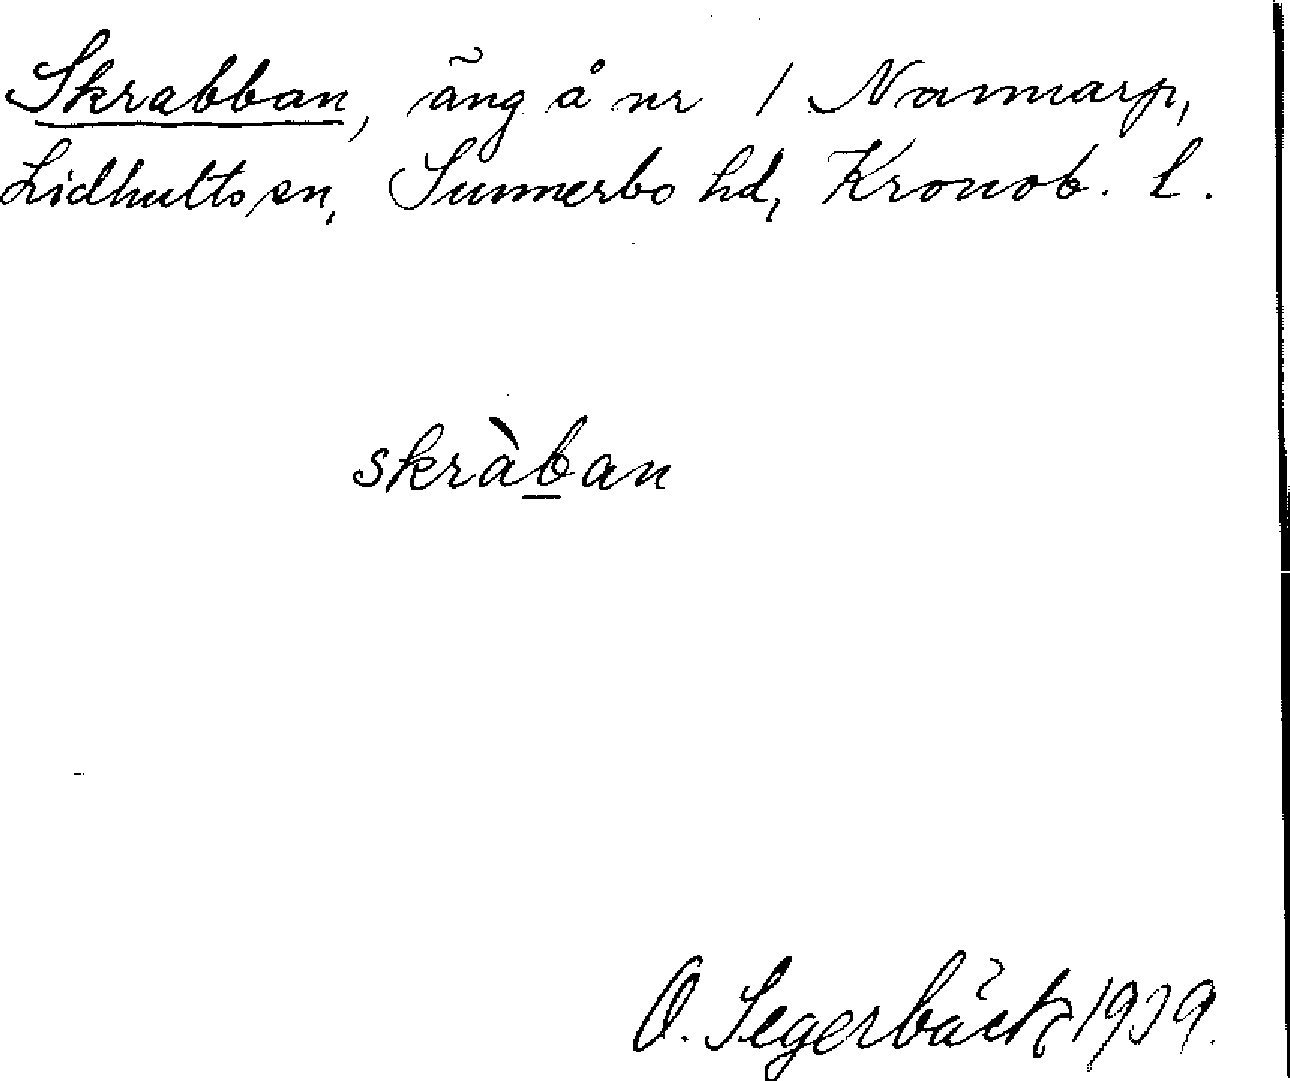 Skrabban, äng å nr 1 Nannarp,
Lidhults sn, Sunnerbo hd, Kronob. l.
skràban
O. Segerbäck 1939.